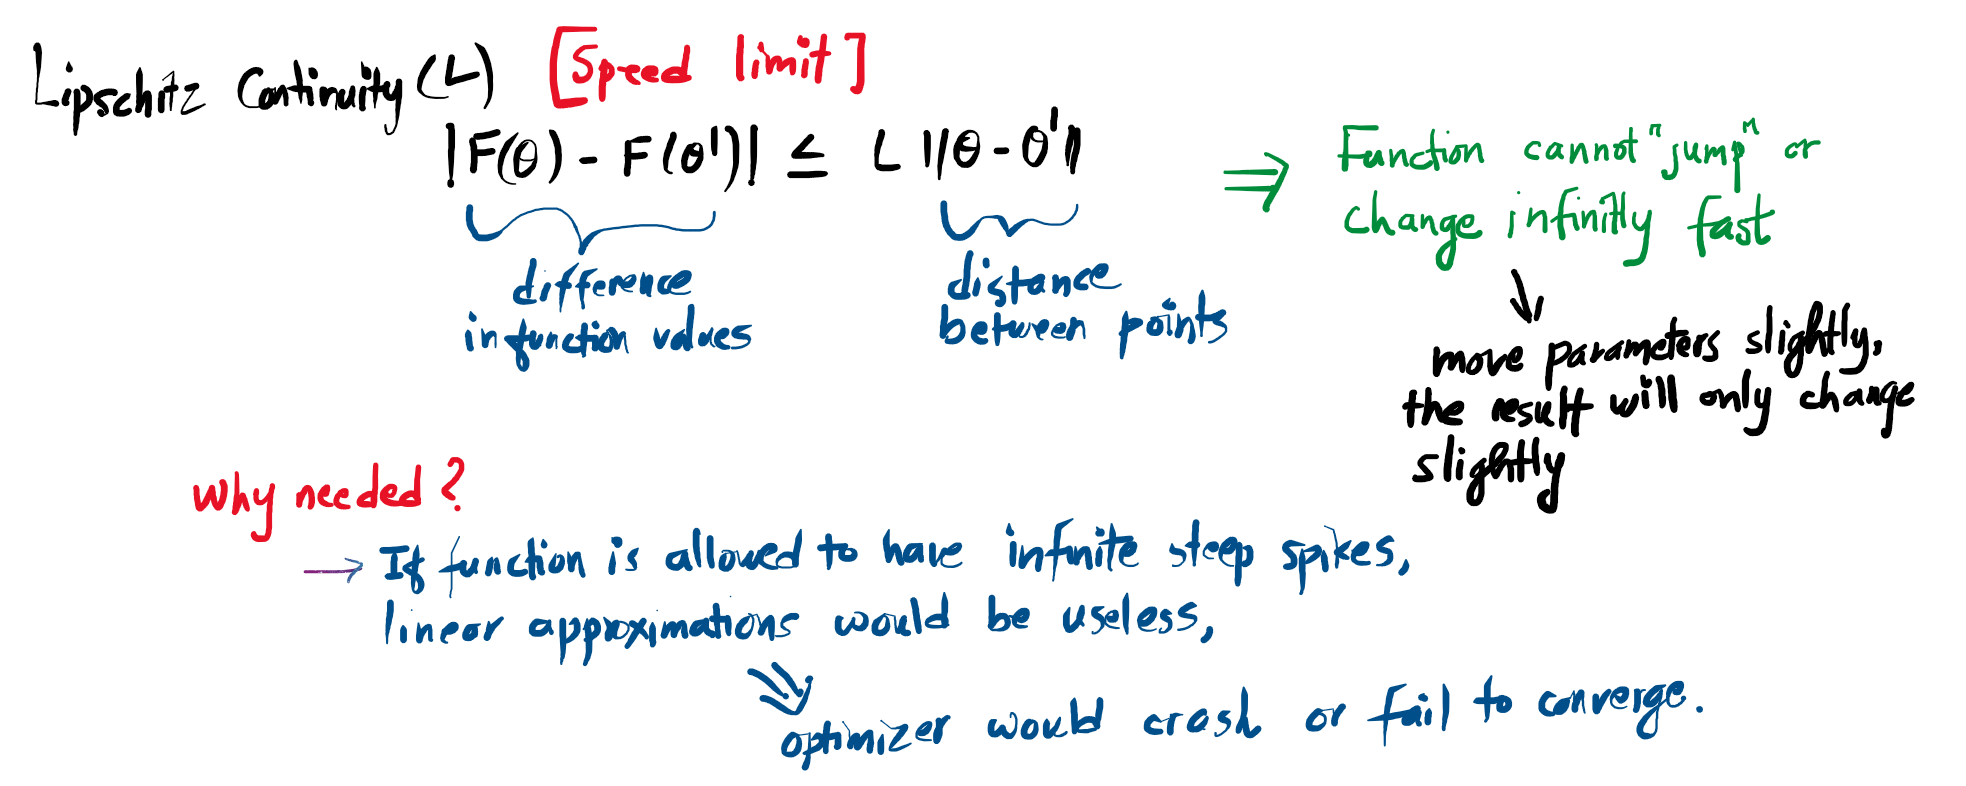 Lipschitz Continuity (L) [Speed limit]
|F(θ) - F(θ')| ≤ L ||θ - θ'||
⇒ Function cannot "jump" or
change infinitly fast
difference
in function values
distance
between points
move parameters slightly,
the result will only change
slightly
Why needed?
→ If function is allowed to have infinite steep spikes,
linear approximations would be useless,
⇒ optimizer would crash or fail to converge.